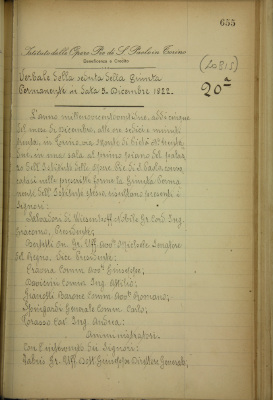 655
Istituto delle Opere Pie di S. Paolo in Torino
Beneficenza e Credito
Verbale della seduta della Giunta
Permanente in data 5 Dicembre 1922.
20
L'anno millenovecentoventidue, addì cinque
del mese di Dicembre, alle ore sedici e minuti
trenta, in Torino, via Monte di Pietà
in una sala al primo piano del palaz
zo dell'Istituto delle Opere Pie di S. Paolo, con
vocatasi nelle prescritte forme la Giunta Perma
nente dell'Istituto stesso, sono presenti i
Signori:
Salvadori di Wiesenhoff Nobile Gr. Cord. Ing.
Giacomo, Presidente;
Gr. Uff. Avv. Senatore
del Regno, Vice Presidente;
Comm. Avv. Giuseppe;
Comm. Ing. Attilio;
Barone Comm. Avv. Romano;
Generale Comm. Carlo;
Cav. Ing. Andrea;
Amministratori.
Con l'intervento dei Signori:
Gr. Uff. Dott. Giuseppe Direttore Generale;